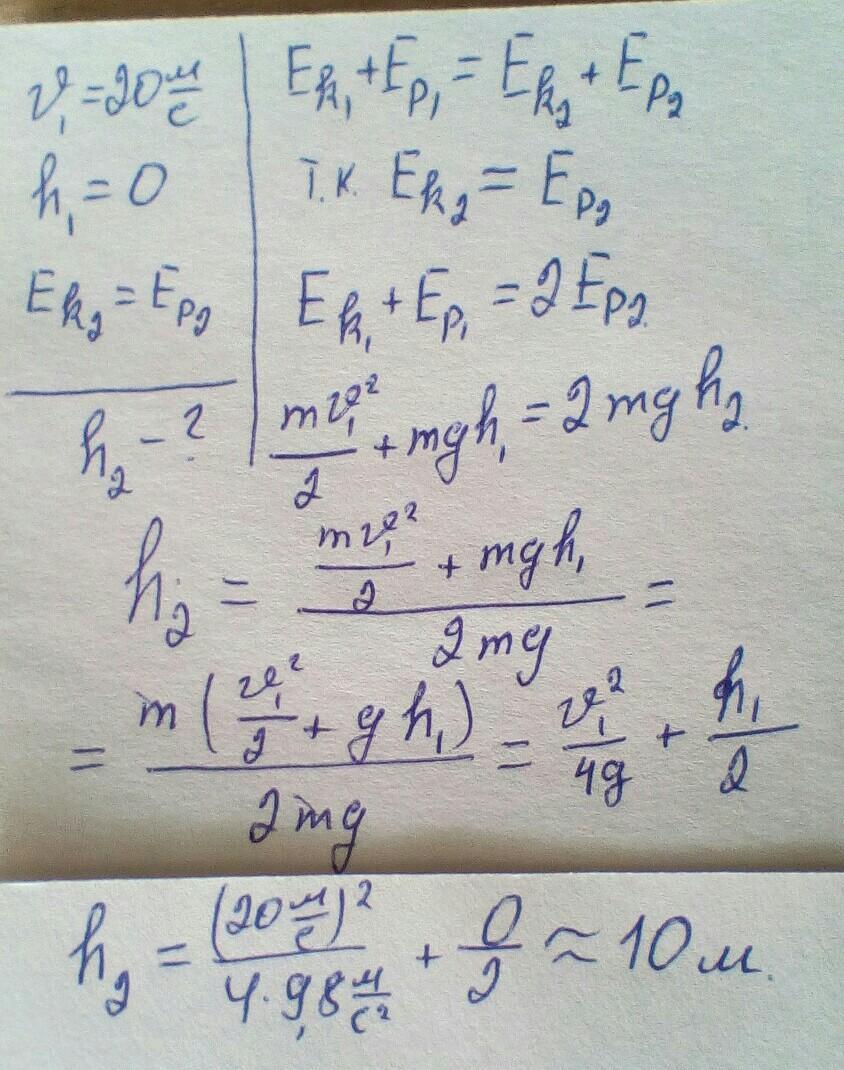 v₁ = 20 м/с
h₁ = 0
Eк₂ = Eр₂
h₂ - ?
Eк₁ + Eр₁ = Eк₂ + Eр₂
т.к. Eк₂ = Eр₂
Eк₁ + Eр₁ = 2Eр₂.
mv₁²/2 + mgh₁ = 2mgh₂.
h₂ = (mv₁²/2 + mgh₁)/2mg =
= m(v₁²/2 + gh₁)/2mg = v₁²/4g + h₁/2
h₂ = (20 м/с)²/4·9,8 м/с² + 0/2 ≈ 10 м.